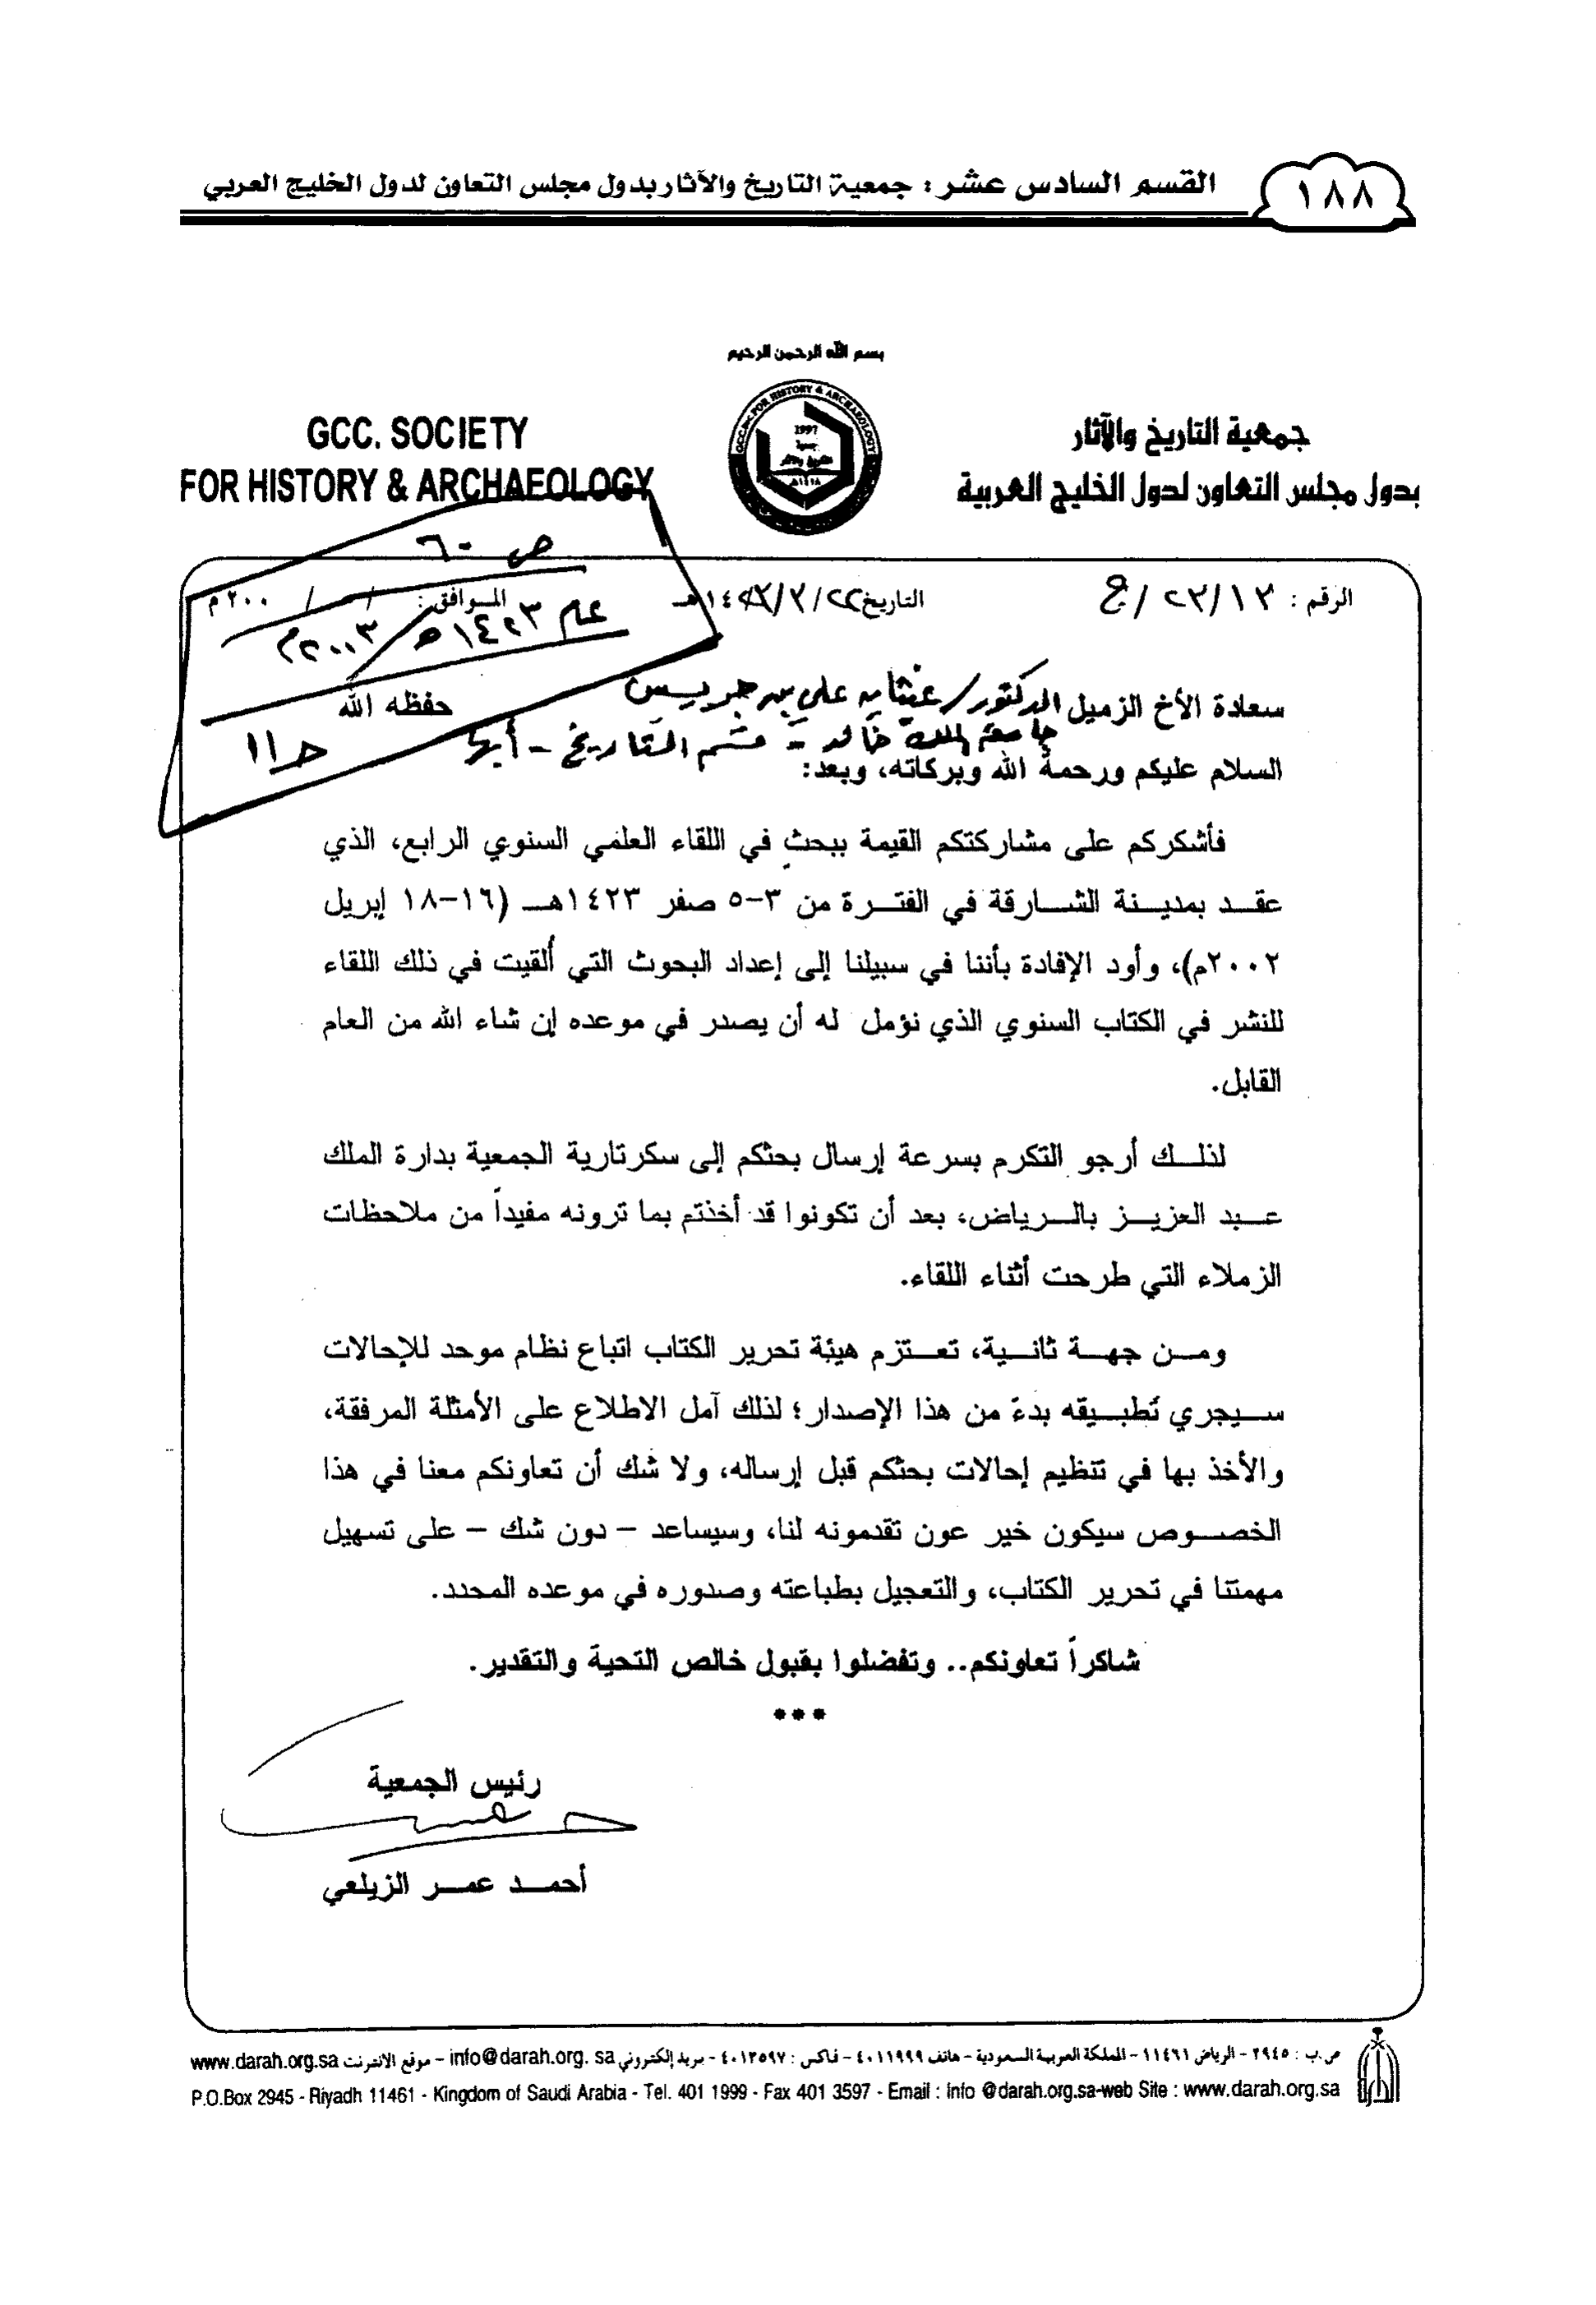 ١٨٨
القسم السادس عشر: جمعية التاريخ والآثار بدول مجلس التعاون لدول الخليج العربي
بسم الله الرحمن الرحيم
جمعية التاريخ والآثار
بدول مجلس التعاون لدول الخليج العربية
GCC. SOCIETY
FOR HISTORY & ARCHAEOLOGY
1997
ص ٦٠
الرقم: ٢٣/١٣/ج
التاريخ ٢٢/٣/١٤٢٣هـ
الموافق: / / ٢٠٠م
عام ١٤٢٣هـ/٢٠٠٣م
سعادة الأخ الزميل الدكتور/ غيثان علي بن جريس
حفظه الله
جامعة الملك خالد - قسم التاريخ - أبها
حـ١١
السلام عليكم ورحمة الله وبركاته، وبعد:
فأشكركم على مشاركتكم القيمة ببحث في اللقاء العلمي السنوي الرابع، الذي
عقد بمدينة الشارقة في الفترة من ٣-٥ صفر ١٤٢٣هـ (١٦-١٨ إبريل
٢٠٠٢م)، وأود الإفادة بأننا في سبيلنا إلى إعداد البحوث التي ألقيت في ذلك اللقاء
للنشر في الكتاب السنوي الذي نؤمل له أن يصدر في موعده إن شاء الله من العام
القابل.
لذلك أرجو التكرم بسرعة إرسال بحثكم إلى سكرتارية الجمعية بدارة الملك
عبد العزيز بالرياض، بعد أن تكونوا قد أخذتم بما ترونه مفيداً من ملاحظات
الزملاء التي طرحت أثناء اللقاء.
ومن جهة ثانية، تعتزم هيئة تحرير الكتاب اتباع نظام موحد للإحالات
سيجري تطبيقه بدءً من هذا الإصدار؛ لذلك آمل الاطلاع على الأمثلة المرفقة،
والأخذ بها في تنظيم إحالات بحثكم قبل إرساله، ولا شك أن تعاونكم معنا في هذا
الخصوص سيكون خير عون تقدمونه لنا، وسيساعد - دون شك - على تسهيل
مهمتنا في تحرير الكتاب، والتعجيل بطباعته وصدوره في موعده المحدد.
شاكراً تعاونكم.. وتفضلوا بقبول خالص التحية والتقدير.
***
رئيس الجمعية
أحمد عمر الزيلعي
ص.ب: ٢٩٤٥ - الرياض ١١٤٦١ - المملكة العربية السعودية - هاتف ٤٠١١٩٩٩ - فاكس: ٤٠١٣٥٩٧ - بريد إلكتروني info@darah.org. sa - موقع الانترنت www.darah.org.sa
P.O.Box 2945 - Riyadh 11461 - Kingdom of Saudi Arabia - Tel. 401 1999 - Fax 401 3597 - Email : Info @darah.org.sa-web Site : www.darah.org.sa